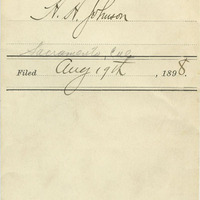 H. H. Johnson
Sacramento,
Filed Aug 19th, 1898.